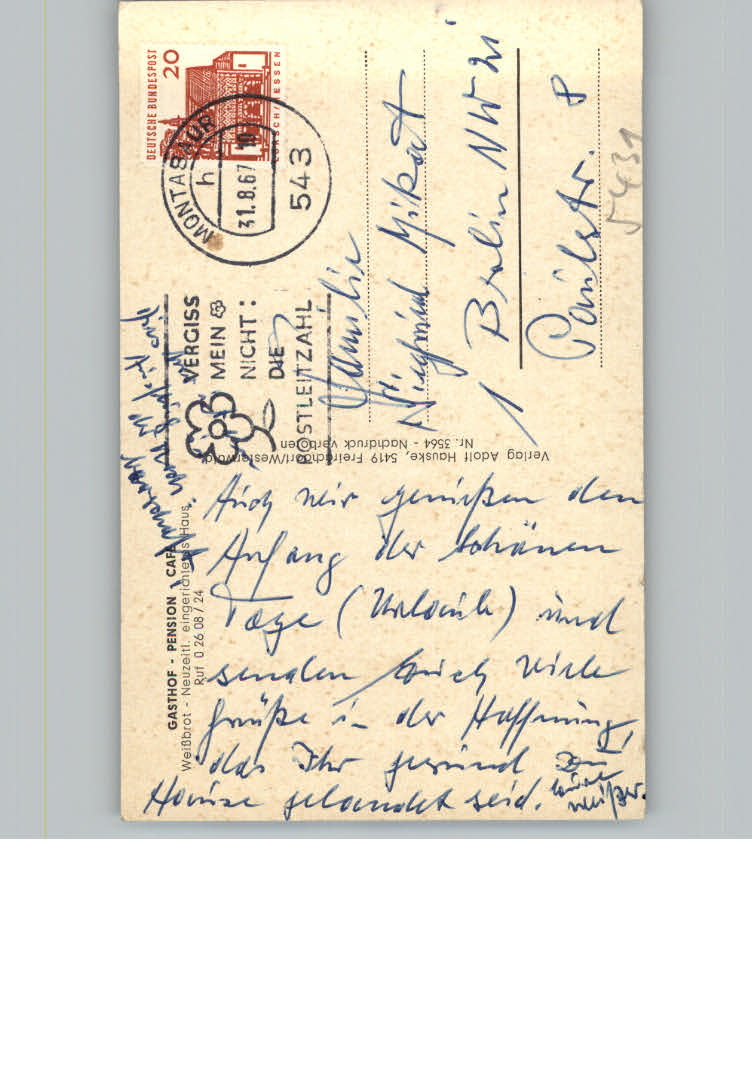 GASTHOF - PENSION - CAFE
Weißbrot - Neuzeitl. eingerichtetes Haus
Ruf 0 26 08 / 24
Auch wir genießen den
Anfang der schönen
Tage (Urlaub) und
senden Euch viele
Grüße in der Hoffnung,
das Ihr gesund zu
Hause gelandet seid.
Verlag Adolf Hauske, 5419 Freirachdorf/Westerwald
Nr. 3564 - Nachdruck verboten
DEUTSCHE BUNDESPOST
20
LORSCH/HESSEN
MONTABAUR
h
31.8.67 10
543
VERGISS
MEIN
NICHT:
DIE
POSTLEITZAHL
Familie
Siegfried Mikat
1 Berlin NW 21
Paulstr. 8
5431